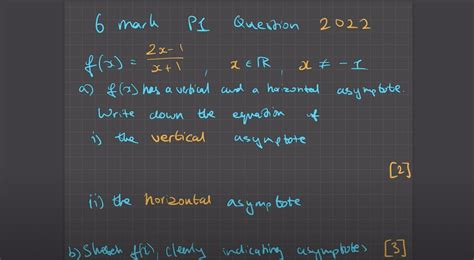 6 mark P1 Question 2022
f(x) = 2x-1/x+1, x ∈ ℝ, x ≠ -1
a) f(x) has a vertical and a horizontal asymptote.
Write down the equation of
i) the vertical asymptote
[2]
ii) the horizontal asymptote
b) Sketch f(x), clearly indicating asymptotes [3]